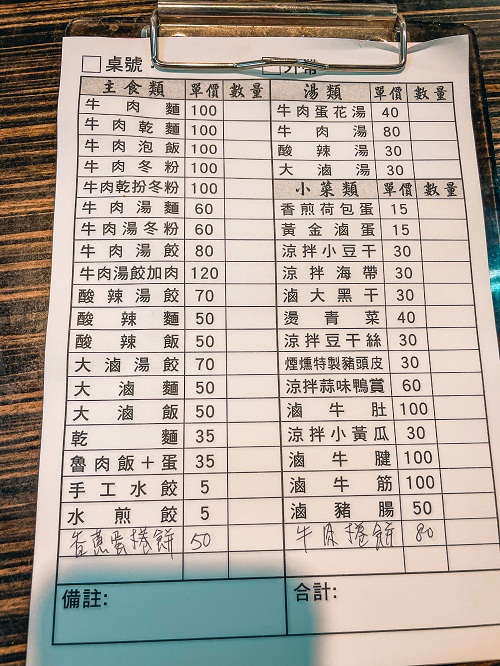 □桌號: □外帶
主食類 單價 數量
牛肉麵 100
牛肉乾麵 100
牛肉泡飯 100
牛肉冬粉 100
牛肉乾扮冬粉 100
牛肉湯麵 60
牛肉湯冬粉 60
牛肉湯餃 80
牛肉湯餃加肉 120
酸辣湯餃 70
酸辣麵 50
酸辣飯 50
大滷湯餃 70
大滷麵 50
大滷飯 50
乾麵 35
魯肉飯+蛋 35
手工水餃 5
水煎餃 5
香蔥蛋捲餅 50
備註:
湯類 單價 數量
牛肉蛋花湯 40
牛肉湯 80
酸辣湯 30
大滷湯 30
小菜類 單價 數量
香煎荷包蛋 15
黃金滷蛋 15
涼拌小豆干 30
涼拌海帶 30
滷大黑干 30
燙青菜 40
涼拌豆干絲 30
煙燻特製豬頭皮 30
涼拌蒜味鴨賞 60
滷牛肚 100
涼拌小黃瓜 30
滷牛腱 100
滷牛筋 100
滷豬腸 50
牛肉捲餅 80
合計: